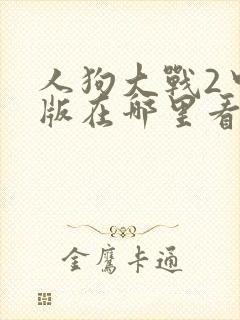 人狗大戰2
版在哪里看
金鷹卡通